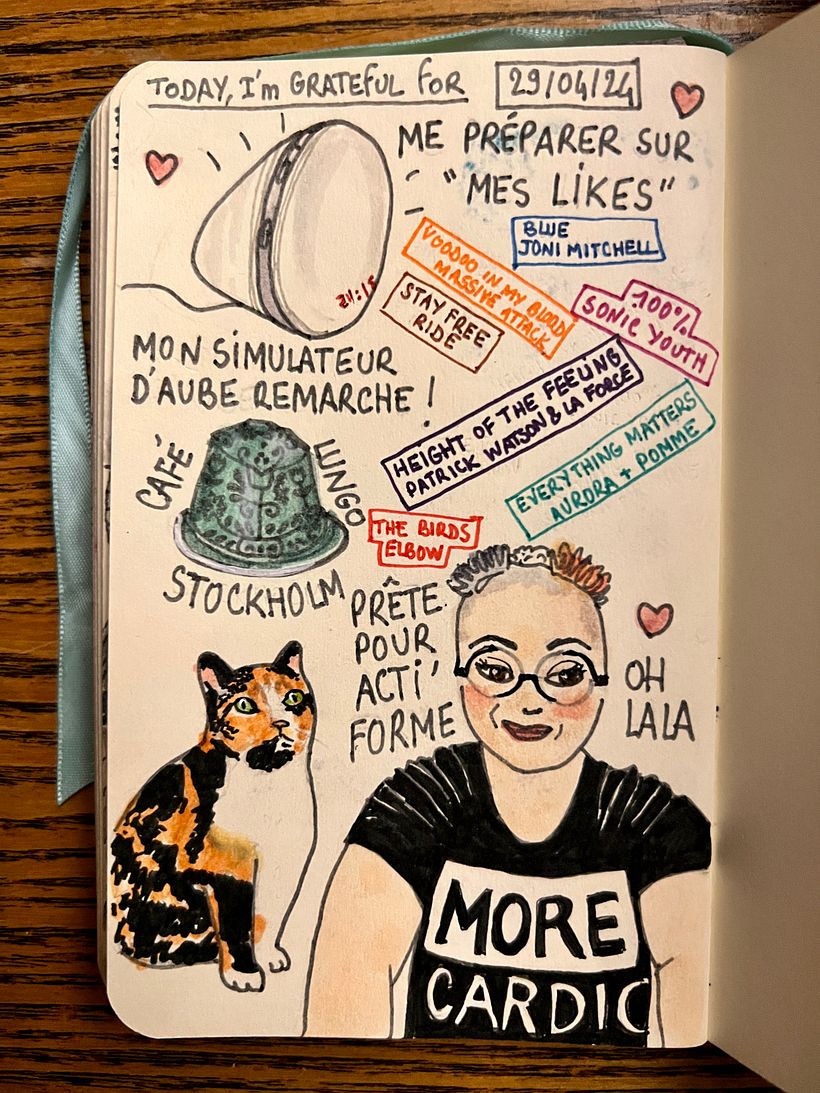 TODAY, I'm GRATEFUL FOR
29/04/24
ME PRÉPARER SUR
"MES LIKES"
BLUE
JONI MITCHELL
VOODOO IN MY BLOOD
MASSIVE ATTACK
STAY FREE
RIDE
100%
SONIC YOUTH
HEIGHT OF THE FEELING
PATRICK WATSON & LA FORCE
EVERYTHING MATTERS
AURORA + POMME
THE BIRDS
ELBOW
MON SIMULATEUR
D'AUBE REMARCHE !
CAFÉ
LUNGO
STOCKHOLM
PRÊTE
POUR
ACTI'
FORME
OH
LALA
MORE
CARDIO